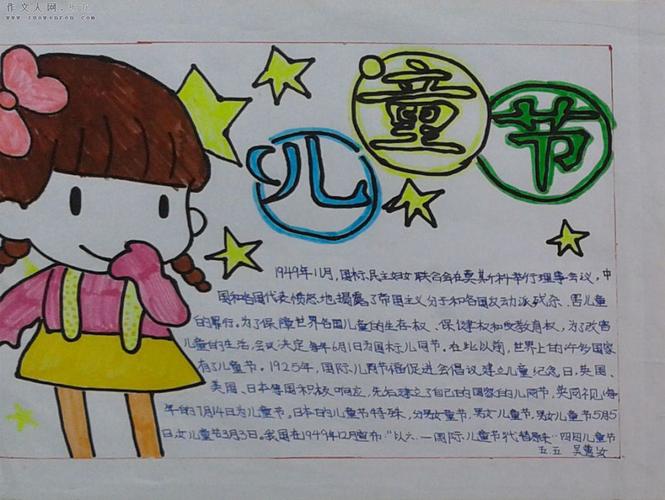 作文人网
www.zuowenren.com
儿童节
1949年11月,国际民主妇女联合会在莫斯科举行理事会议,中
国和各国代表愤怒地揭露了帝国主义分子和各国反动派残杀、害儿童
的罪行。为了保障世界各国儿童的生存权、保健权和受教育权,为了改善
儿童的生活,会议决定每年6月1日为国际儿同节。在此以前,世界上的许多国家
有了儿童节。1925年,国际儿童幸福促进会倡议建立儿童纪念日,英国、
美国、日本等国积极响应,先后建立了自己的国家的儿同节。英国规定每
年的7月14日为儿童节。日本的儿童节特殊,分男女童节,男女儿童节,男女儿童节5月5
日女儿童节3月3日。我国在1949年12月宣布"以六一国际儿童节代替原来"四四儿童节
五.五 吴